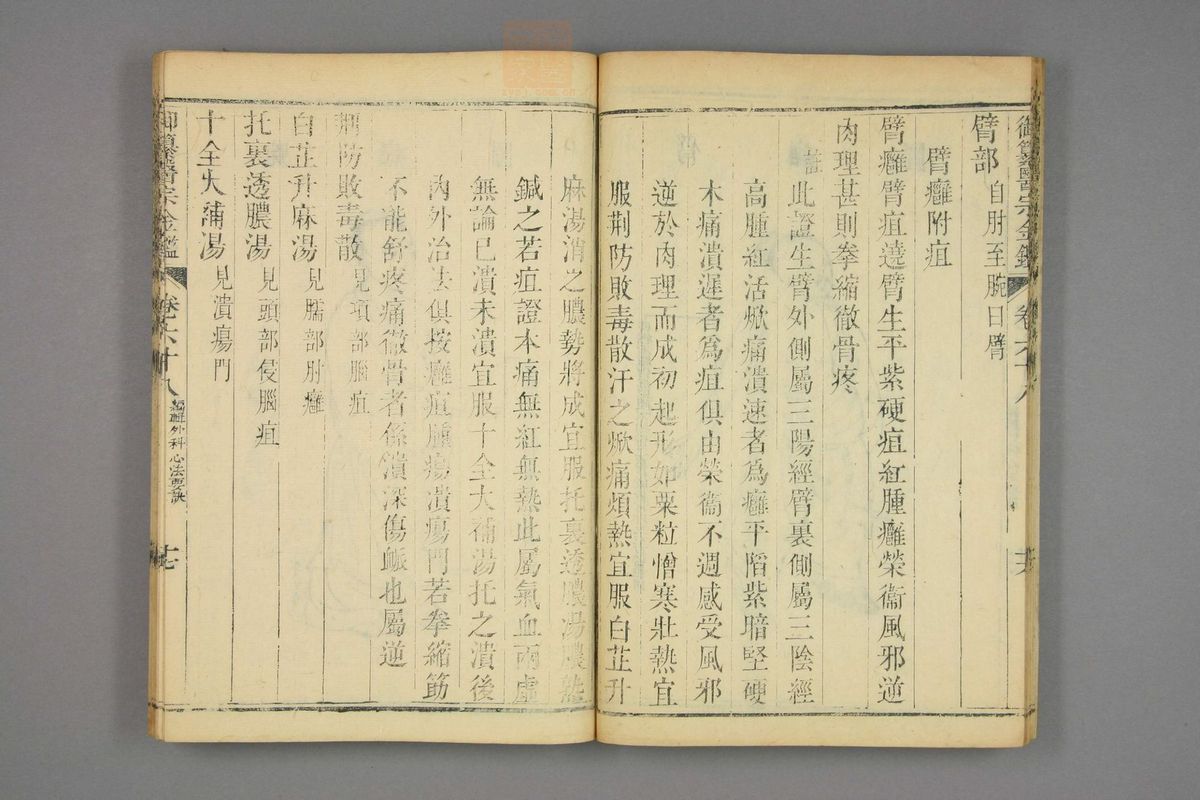 御纂醫宗金鑑 卷六十八
臂部 自肘至腕曰臂
臂癰附疽
臂癰臂疽遶臂生平紫硬疽紅腫癰榮衞風邪逆
肉理甚則拳縮徹骨疼
註 此證生臂外側屬三陽經臂裏側屬三陰經
高腫紅活焮痛潰速者爲癰平陷紫暗堅硬
木痛潰遲者爲疽俱由榮衞不週感受風邪
逆於肉理而成初起形如粟粒憎寒壯熱宜
服荆防敗毒散汗之焮痛煩熱宜服白芷升
麻湯消之膿勢將成宜服托裏透膿湯膿熟
鍼之若疽證木痛無紅無熱此屬氣血兩虛
無論已潰未潰宜服十全大補湯托之潰後
內外治法俱按癰疽腫瘍潰瘍門若拳縮筋
不能舒疼痛徹骨者係潰深傷脈也屬逆
荆防敗毒散 見項部腦疽
白芷升麻湯 見臑部肘癰
托裏透膿湯 見頭部侵腦疽
十全大補湯 見潰瘍門
御纂醫宗金鑑 卷六十八 編輯外科心法要訣 十七